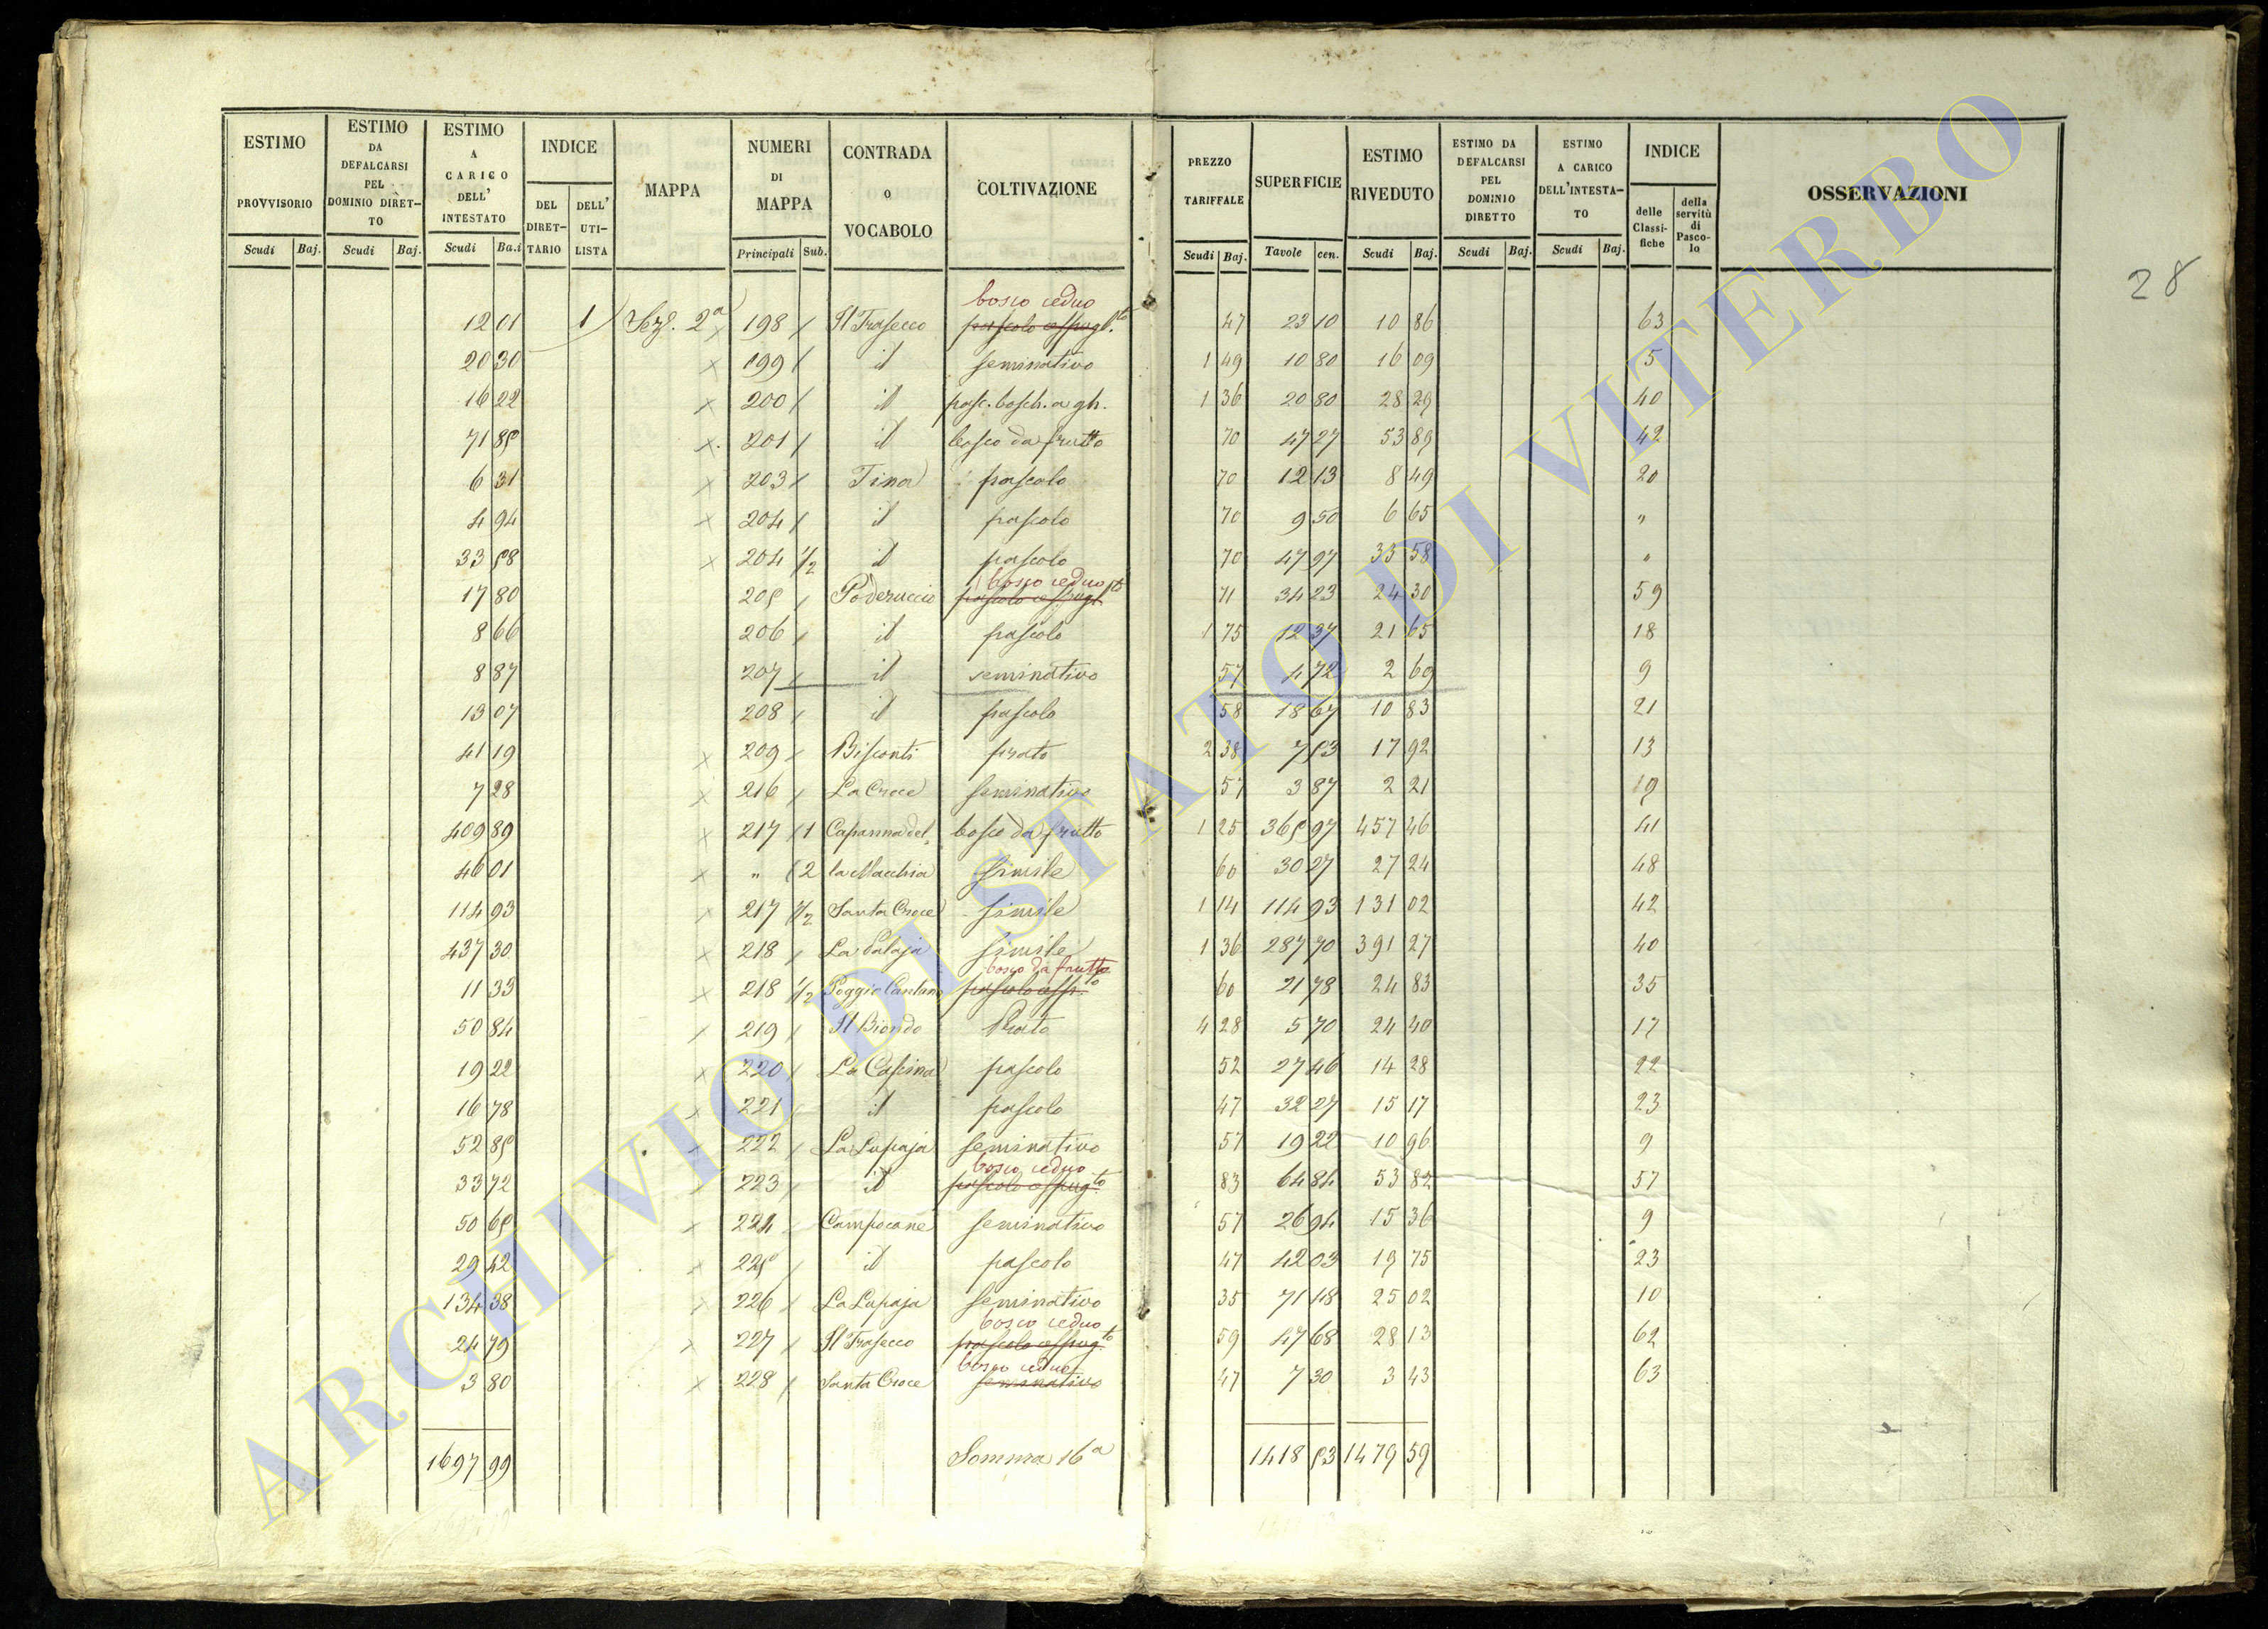 ESTIMO PROVVISORIO Scudi Baj.
ESTIMO DA DEFALCARSI PEL DOMINIO DIRET-TO Scudi Baj.
ESTIMO A CARICO DELL' INTESTATO Scudi Ba.i
INDICE DEL DIRET-TARIO DELL' UTI-LISTA
MAPPA
NUMERI DI MAPPA Principali Sub.
CONTRADA o VOCABOLO
COLTIVAZIONE
PREZZO TARIFFALE Scudi Baj.
SUPERFICIE Tavole cen.
ESTIMO RIVEDUTO Scudi Baj.
ESTIMO DA DEFALCARSI PEL DOMINIO DIRETTO Scudi Baj.
ESTIMO A CARICO DELL'INTESTA-TO Scudi Baj.
INDICE delle Classi-fiche della servitù di Pasco-lo
OSSERVAZIONI
28
bosco ceduo
12 01 1 Sez. 2a 198 Il Trasecco pascolo cespugl.to 47 23 10 10 86 63
20 30 199 id seminativo 1 49 10 80 16 09 5
16 22 200 id pasc. bosch. a gh. 1 36 20 80 28 29 40
71 85 201 id bosco da frutto 70 47 27 53 89 42
6 31 203 Tina pascolo 70 12 13 8 49 20
4 94 204 id pascolo 70 9 50 6 65 "
33 58 204 1/2 id pascolo 70 47 97 33 58 "
bosco ceduo
17 80 205 Poderuccio pascolo cespugl.to 71 34 23 24 30 59
8 66 206 id pascolo 1 75 12 37 21 65 18
8 87 207 id seminativo 57 4 72 2 69 9
13 07 208 id pascolo 58 18 67 10 83 21
41 19 209 Bisconti prato 2 38 7 53 17 92 13
7 28 216 La Croce seminativo 57 3 87 2 21 19
409 89 217 1 Capanna del bosco da frutto 1 25 365 97 457 46 41
46 01 " 2 la Macchia simile 60 30 27 27 24 48
114 93 217 1/2 Santa Croce simile 1 14 114 93 131 02 42
437 30 218 simile 1 36 287 70 391 27 40
bosco da frutto
11 33 218 1/2 Poggio pascolo cesp.to 60 21 78 24 83 35
50 84 219 Il Biondo Prato 4 28 5 70 24 40 17
19 22 220 La Cascina pascolo 52 27 46 14 28 22
16 78 221 id pascolo 47 32 27 15 17 23
52 85 222 La Lupaja seminativo 57 19 22 10 96 9
bosco ceduo
33 72 223 id pascolo cespug.to 83 64 84 53 82 57
50 65 224 Campocane seminativo 57 26 94 15 36 9
29 42 225 id pascolo 47 42 03 19 75 23
134 38 226 La Lupaja seminativo 35 71 48 25 02 10
bosco ceduo
24 79 227 Il Trasecco pascolo cespug.to 59 47 68 28 13 62
bosco ceduo
3 80 228 Santa Croce seminativo 47 7 30 3 43 63
1697 99 Somma 16a 1418 53 1479 59
ARCHIVIO DI STATO DI VITERBO